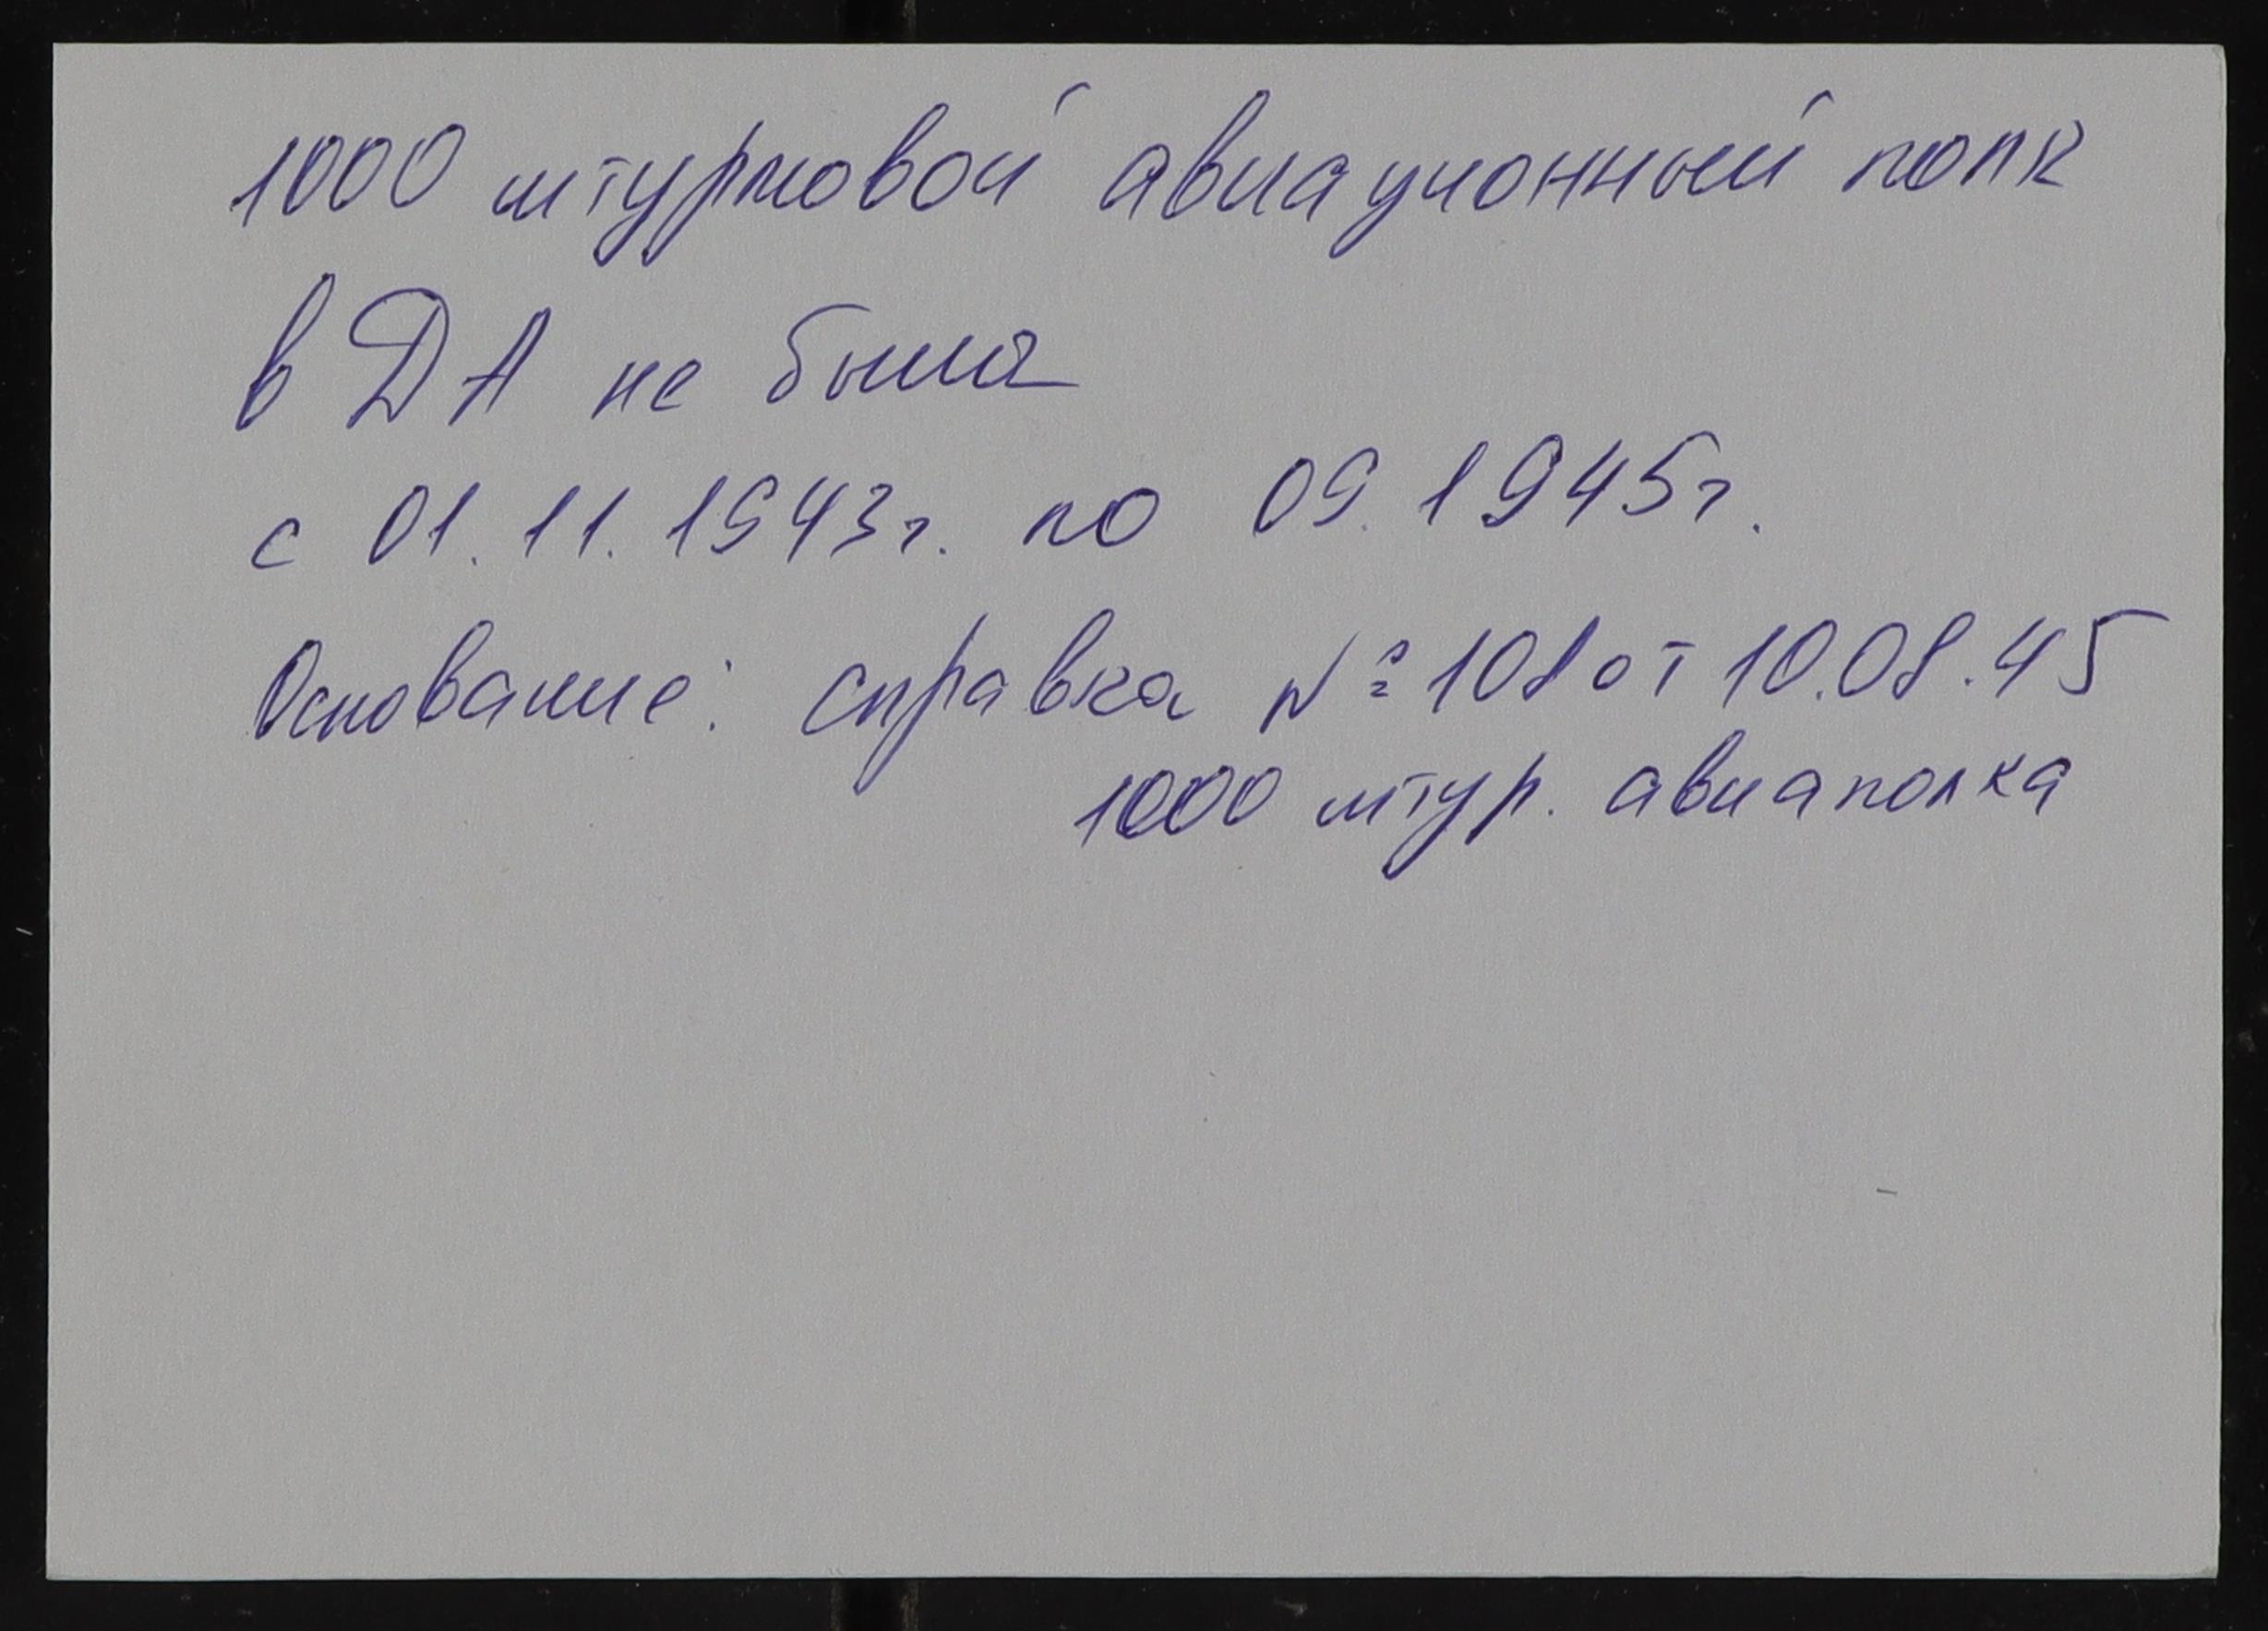 1000 штурмовой авиационный полк
в ДА не была
с 01.11.1943г. по 09.1945г.
Основание: справка №108 от 10.08.45
1000 штур. авиаполка